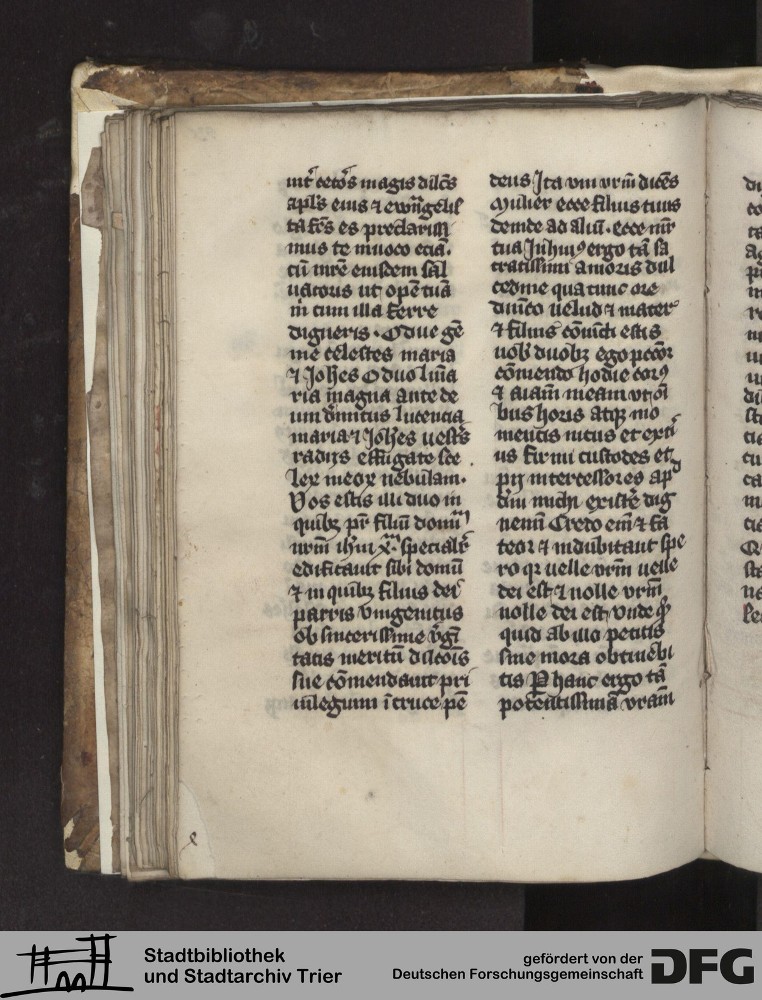 int̾ cet̾os magis dilc̄s
apl̄s eius ⁊ ewn̄gelis
ta fr̄s es preclariss
mus te inuoco ecia.
cū mr̄e eiusdem sal
uatoris ut opē tuā
m̄ cum illa ferre
digneris. O due gē
me celestes maria
⁊ Joh̄es O duo lūīa
ria magna ante de
um diuinitus lucencia
maria ⁊ Joh̄es uest̄s
radijs effugate sce
leꝝ meoꝝ nebulam.
Vos estis illi duo in
quibꝫ pr̄ filiū domī
nrm̄ ih̄m xp̄m specialr̄
edificauit sibi domū
⁊ in quibꝫ filius dei
patris vnigenitus
ob sincerissime v̄gī
tatis meritū dilcōis
sue cōmendauit pri
uilegium ī cruce pē
deus Ita vni vrm̄ dicēs
Mulier ecce filius tuus
deinde ad aliū. ecce mr̄
tua In huiꝰ ergo tā sa
cratissimi amoris dul
cedine qua tunc ore
diuīco uelud ⁊ mater
⁊ filius cōuicti estis
uob̄ duobꝫ ego pctōr
cōmendo hodie corꝰ
⁊ aiam̄ meam ut oī
bus horis atqꝫ mo
mentis intus et exti
us firmi custodes et
pij intercessores apd̾
dm̄ michi existe dig
nemī Credo em̄ ⁊ fa
teor ⁊ indubitant̾ spe
ro qꝛ uelle vrm̄ uelle
dei est ⁊ nolle vrm̄
nolle dei est vnde qꝫ
quid ab illo petitis
sine mora obtinebi
tis P hanc ergo tā
potentissimā vram̄
Stadtbibliothek
und Stadtarchiv Trier
gefördert von der
Deutschen Forschungsgemeinschaft
DFG